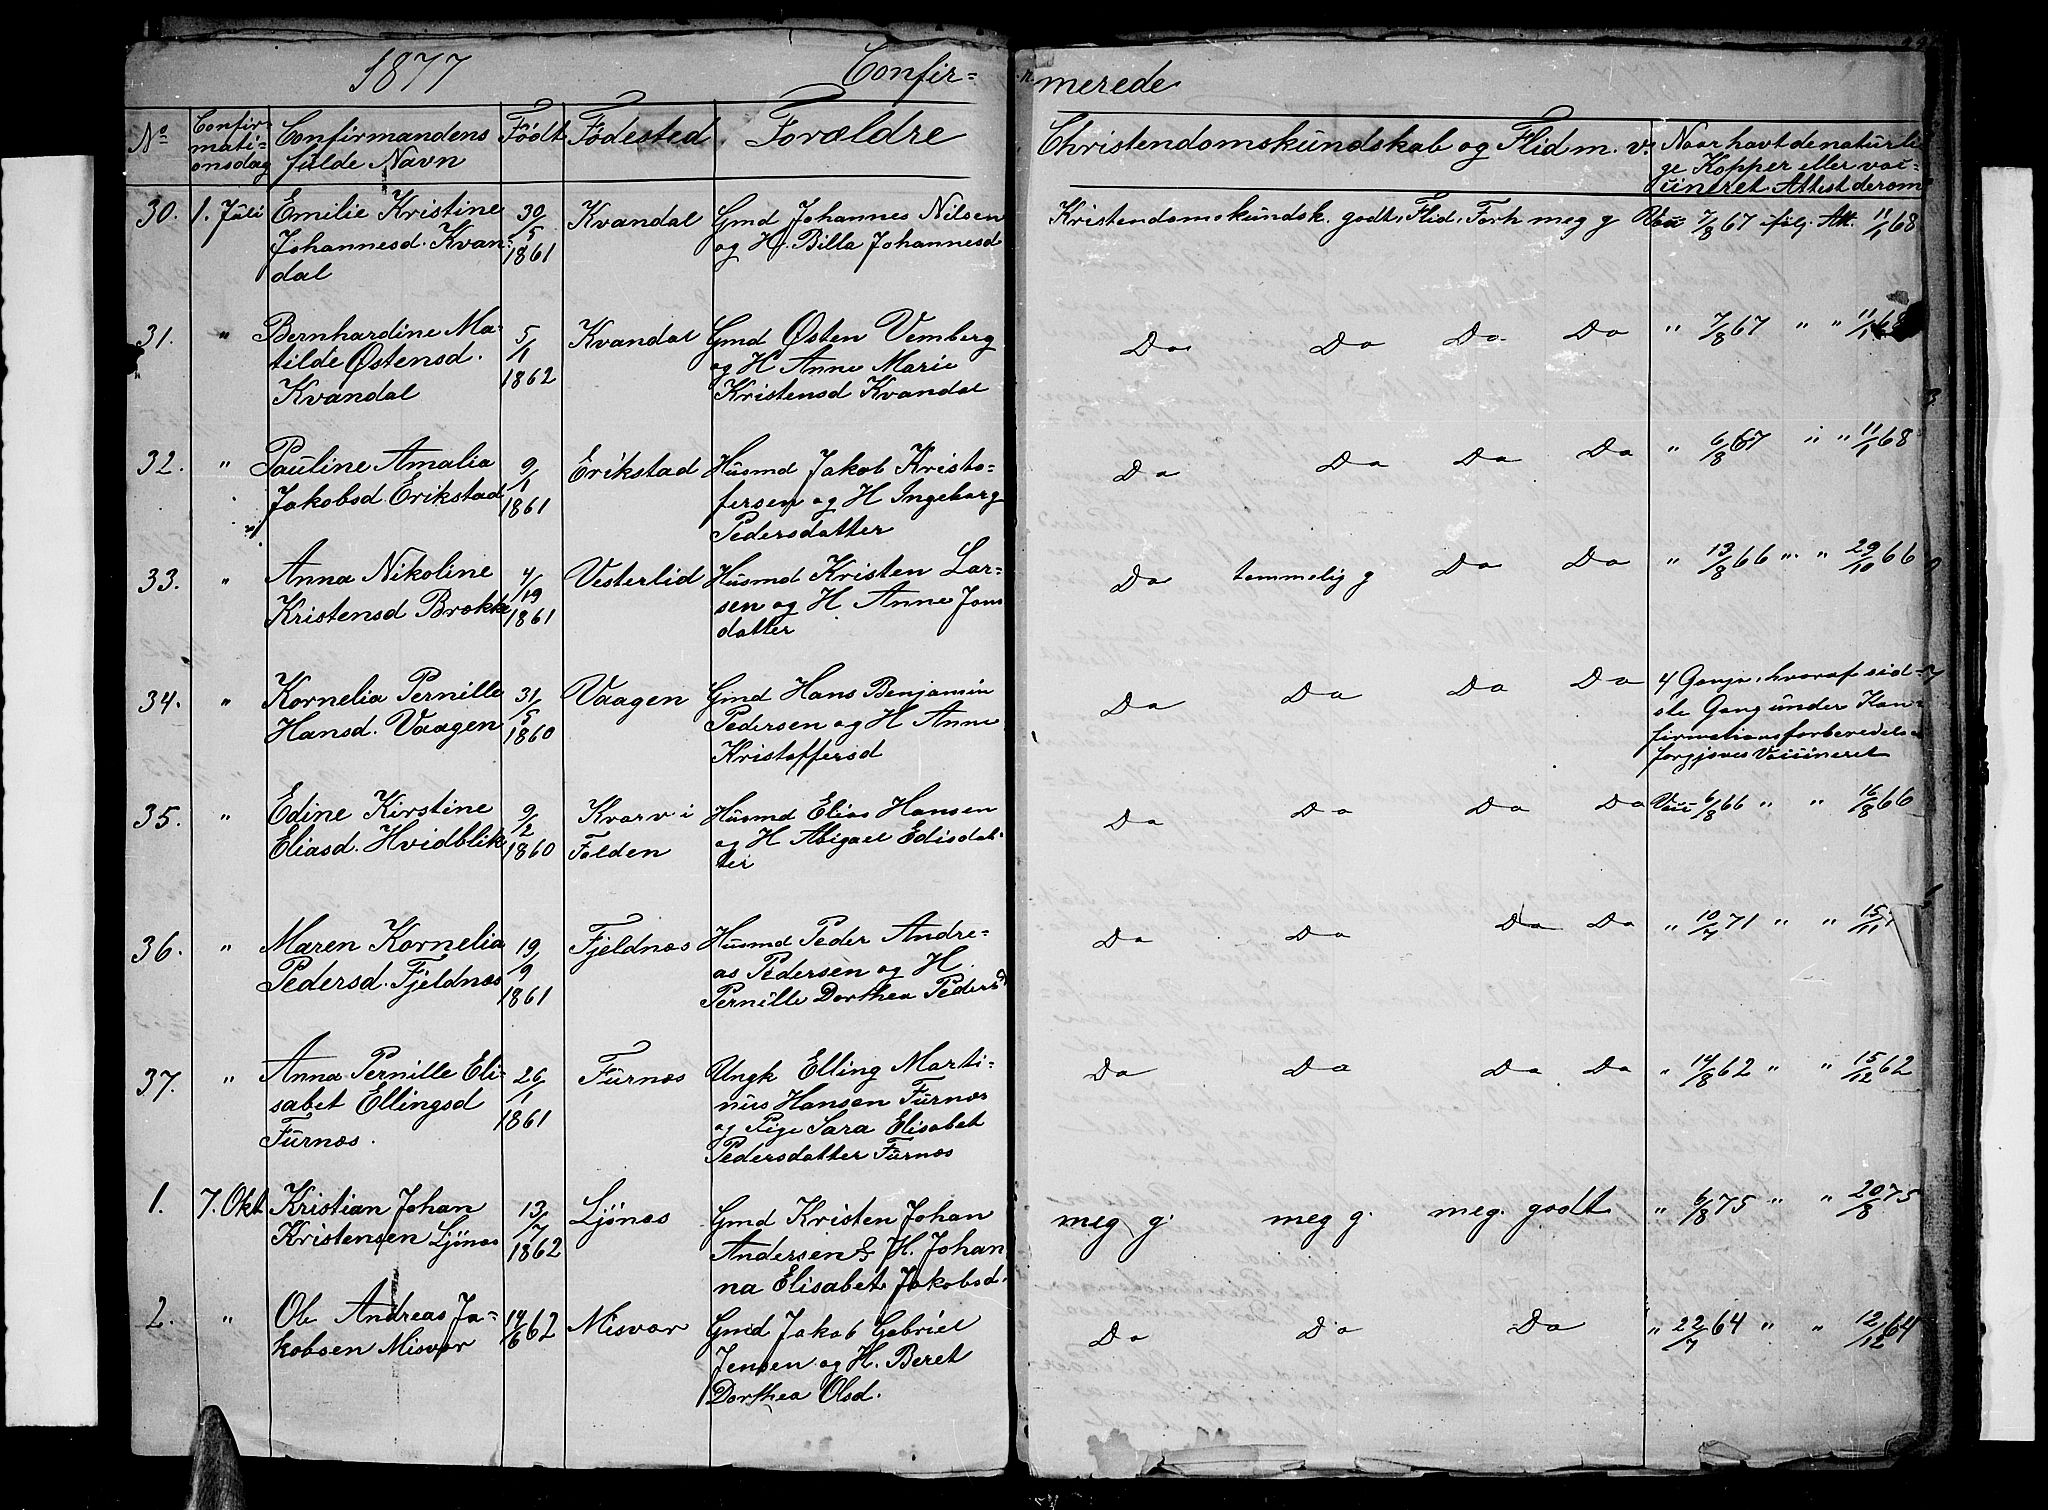 1877 Confir= merede
No Confirmationsdag Confirmandens fulde Navn Födt Födested Forældre Christendomskundskab og Flid m. v. Naar havt de naturlige Kopper eller vaccineret. Attest derom
30. 1. Juli Emilie Kristine 30/5 1861 Kvandal Gmd Johannes Nilsen Kristendomskundsk. godt, Flid, Forh meg g Vac 7/8 67 ifölg. Att. 11/1 68
Johannesd. Kvan- og H. Billa Johannesd
dal
31. " Bernhardine Ma- 5/1 1862 Kvandal Gmd Østen Vemberg Do Do Do Do " 7/8 67 " " 11/1 68
tilde Østensd. og H Anne Marie
Kvandal Kristensd Kvandal
32. " Pauline Amalia 9/1 1861 Erikstad Husmd Jakob Kristo- Do Do Do Do " 6/8 67 " " 11/1 68
Jakobsd Erikstad fersen og H Ingeborg
Pedersdatter
33. " Anna Nikoline 4/19 1861 Vesterlid Husmd Kristen Lar- Do temmelig g Do Do " 13/8 66 " " 29/10 66
Kristensd Brække sen og H Anne Jons
datter
34. " Kornelia Pernille 31/5 1860 Vaagen Gmd Hans Benjamin Do Do Do Do 4 Gange, hvoraf sid-
Hansd. Vaagen Pedersen og H Anne ste Gang under Kon-
Kristoffersd firmationsforberedelse
forgjæves Vaccineret
35. " Edine Kirstine 9/2 1860 Kvarv i Husmd Elias Hansen Do Do Do Do Vac 6/8 66 " " 16/8 66
Eliasd. Hvidblik Folden og H Abigael Edisdat-
ter
36. " Maren Kornelia 19/9 1861 Fjeldnæs Husmd Peder Andre- Do Do Do Do " 10/7 71 " " 15/11
Pedersd. Fjeldnæs as Pedersen og H.
Pernille Dorthea Pedersd
37. " Anna Pernille Eli- 26/1 1861 Furnæs Ungk Elling Marti- Do Do Do Do " 14/8 62 " " 15/12 62
sabet Ellingsd nus Hansen Furnæs
Furnæs. og Pige Sara Elisabet
Pedersdatter Furnæs
1. 7. Okt Kristian Johan 13/7 1862 Ljönæs Gmd Kristen Johan meg g. meg g. meg. godt " 6/8 75 " " 20/8 75
Kristensen Ljönæs Andersen & H. Johan
na Elisabet Jakobsd.
2. " Ole Andreas Ja- 14/6 62 Misvær Gmd Jakob Gabriel Do Do Do " 22/7 64 " " 12/12 64
kobsen Misvær Jensen og H. Beret
Dorthea Olsd.